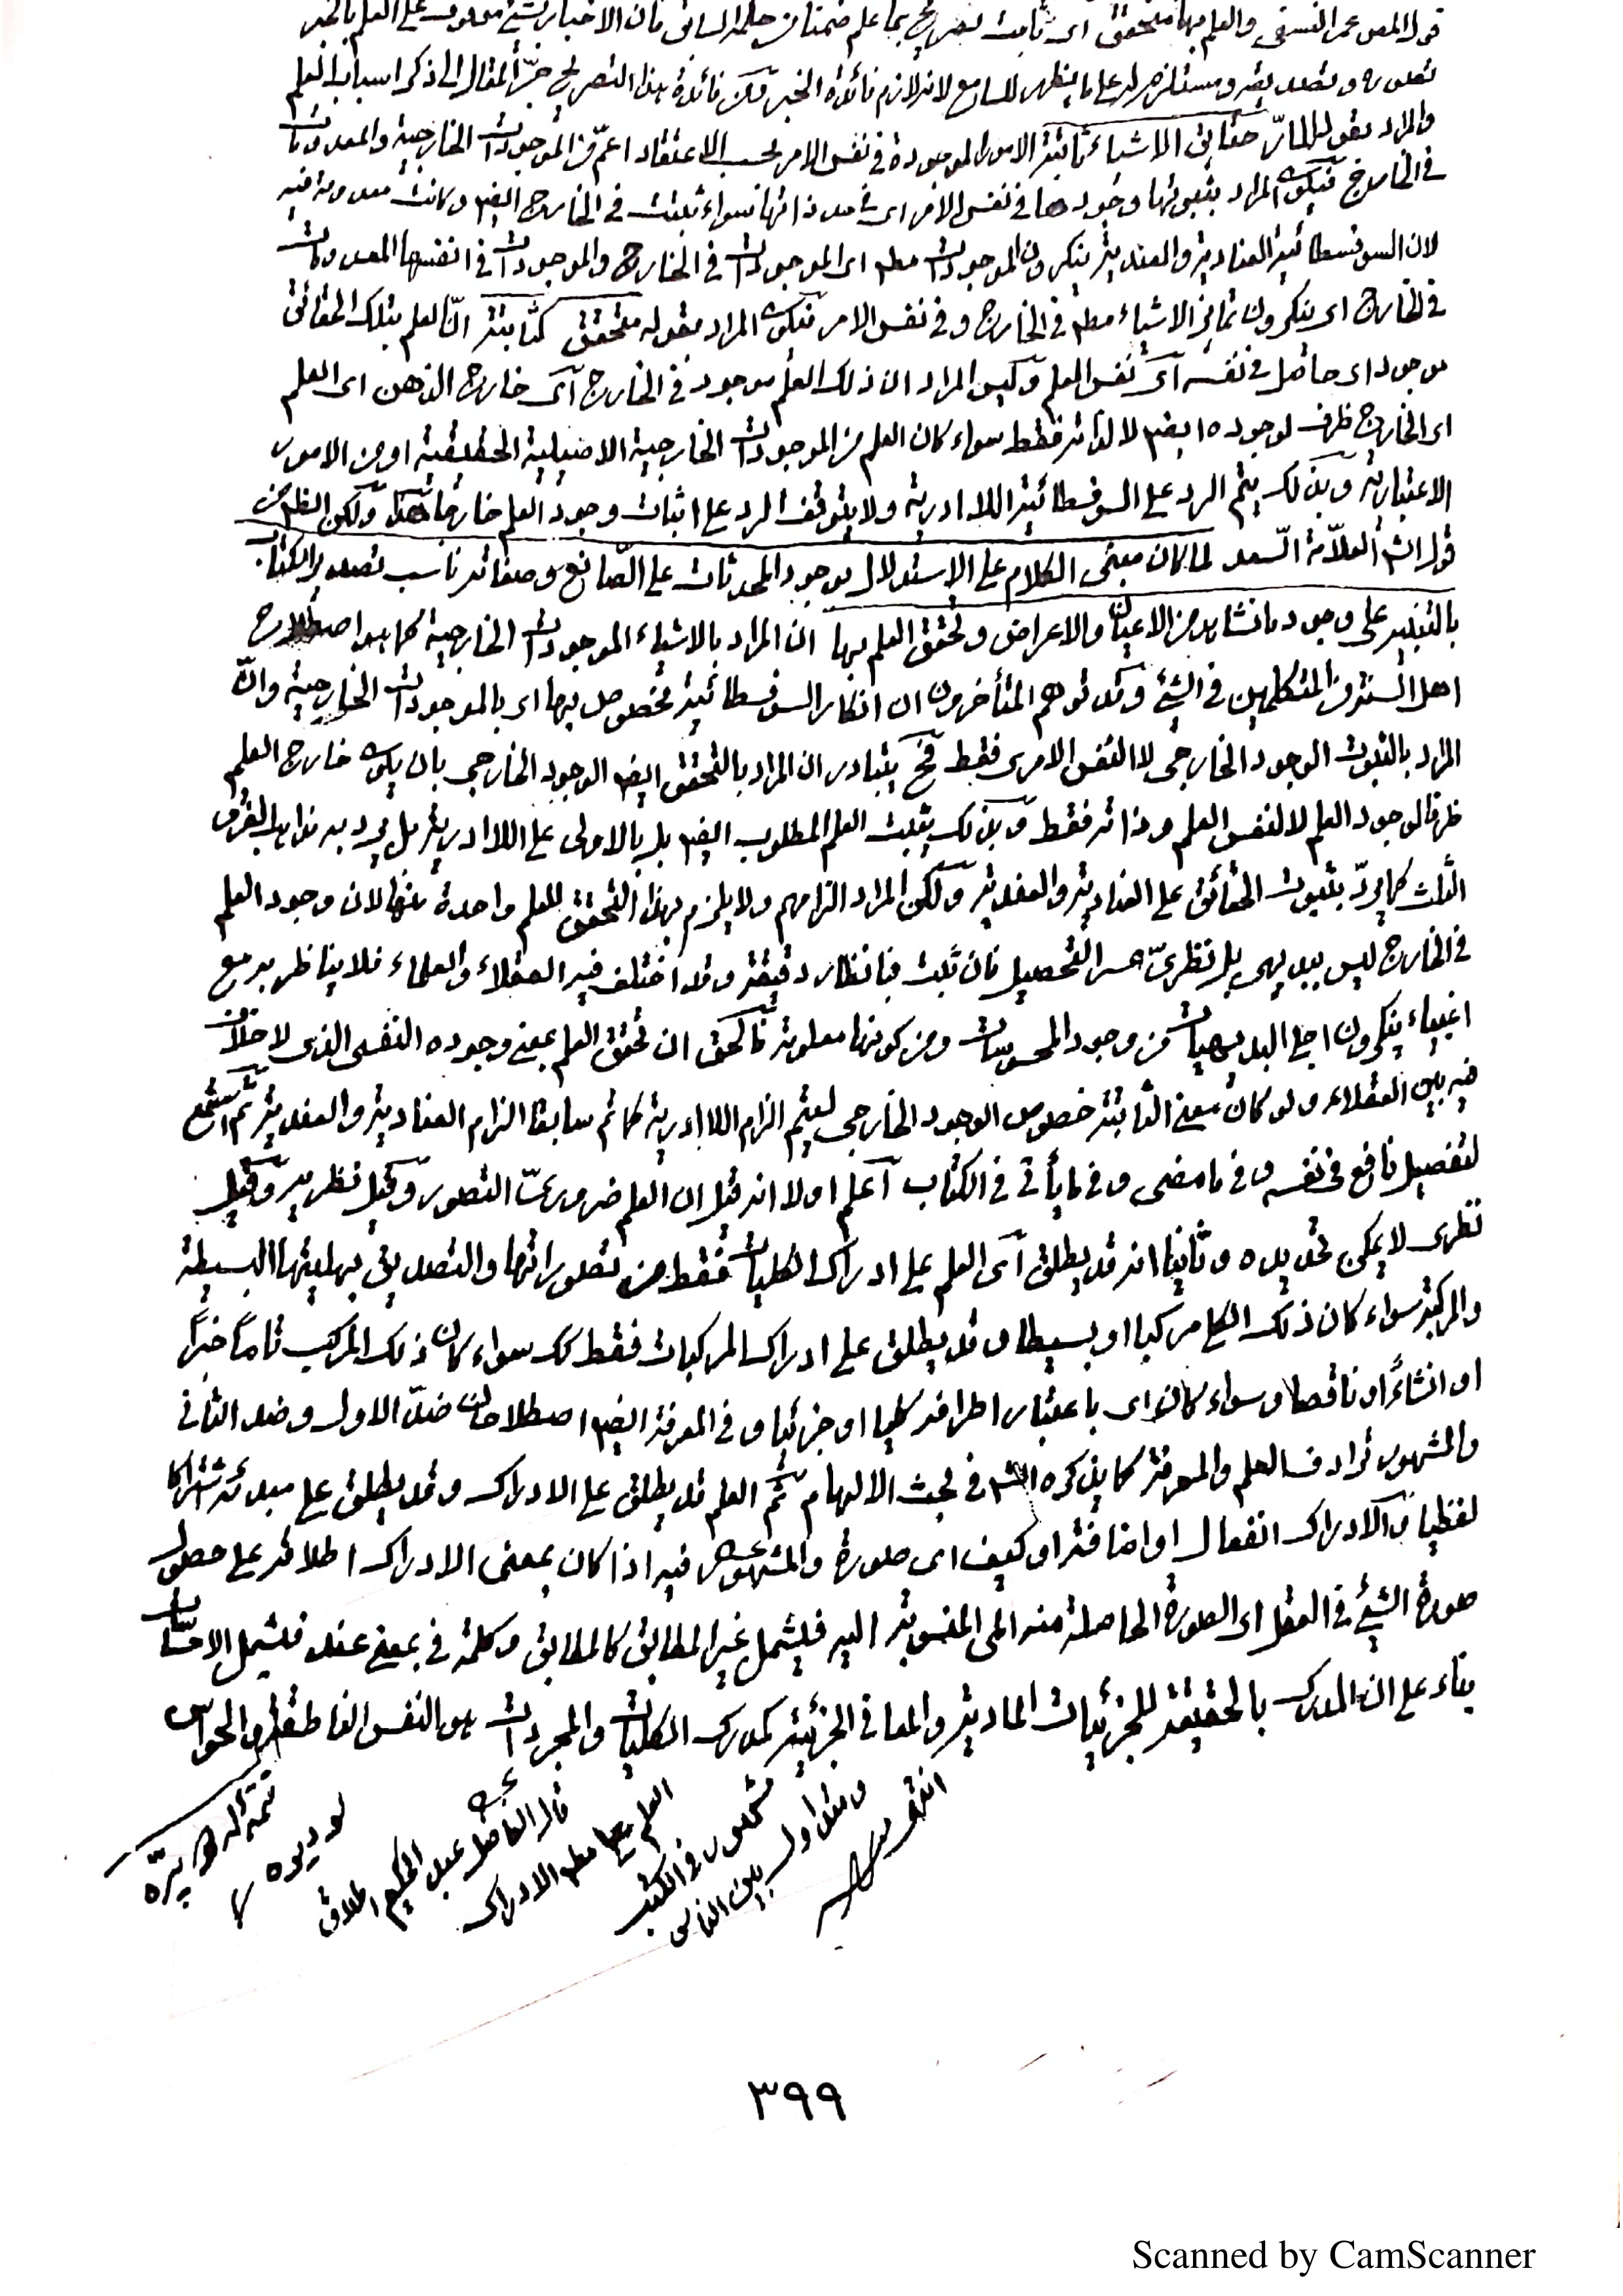 قول المص عمر النسفي والعلم بها متحقق اى ثابت تصريح بما علم ضمنا من حكمه السابق فان الاخبار بشئ موقوف على العلم بالخبر
تصوره وتصديقه ومستلزم له على ما يظهر للسامع لانه لازم فائدة الخبر ولكن فائدة هذا التصريح جرّ المقال الى ذكر اسباب العلم
والمراد بقوله المارّ حقائق الاشياء ثابتة الامور الموجودة في نفس الامر بحسب الاعتقاد اعمّ من الموجودات الخارجية والمعدومات
في الخارج فيكون المراد بثبوتها وجودها في نفس الامر اى في حد ذاتها سواء ثبتت في الخارج ايضا او كانت معدومة فيه
لان السوفسطائية العنادية والعندية ينكرون الموجودات مطلقا اى الموجودات في الخارج والموجودات في انفسها المعدومات
في الخارج اى ينكرون تمايز الاشياء مط في الخارج وفي نفس الامر فيكون المراد بقوله متحقق كثابتة انّ العلم بتلك الحقائق
موجود اى حاصل في نفسه اى نفس العلم وليس المراد ان ذلك العلم موجود في الخارج اى خارج الذهن اى العلم
اى الخارج ظرف لوجوده ايض لا لذاته فقط سواء كان العلم من الموجودات الخارجية الاصيلية الحقيقية او من الامور
الاعتبارية وبذلك يتم الرد على السوفسطائية اللاادرية ولا يتوقف الرد على اثبات وجود العلم خارجا هذا ولكن الظ من
قول الش العلاّمة السّعد لما كان مبنى الكلام على الاستدلال بوجود المحدثات على الصّانع وصفاته ناسب تصدير الكتاب
بالتنبيه على وجود ما نشاهد من الاعيان والاعراض وتحقق العلم بها ان المراد بالاشياء الموجودات الخارجية كما هو اصطلاح
اهل السنة والمتكلمين في الشئ وقد توهم المتأخرون ان انكار السوفسطائية مخصوص بها اى بالموجودات الخارجية وانّ
المراد بالثبوت الوجود الخارجى لا النفس الامرى فقط فح يتبادر ان المراد بالتحقق ايض الوجود الخارجى بان يكون خارج العلم
ظرفا لوجود العلم لا لنفس العلم وذاته فقط وبذلك يثبت العلم المطلوب ايض بل بالاولى على اللاادرية بل يرد به مذاهب الفرق
الثلث كما يردّ بثبوت الحقائق على العنادية والعندية ولكن المراد الزامهم ولا يلزم بهذا التحقق للعلم واحدة منها لان وجود العلم
في الخارج ليس ببديهى بل نظرىّ عسر التحصيل فان ثبت فبانظار دقيقة وقد اختلف فيه العقلاء والعلماء فلا يناظر به مع
اغبياء ينكرون اجلى البديهيات من وجود المحسوسات ومن كونها معلومة فالحق ان تحقق العلم بمعنى وجوده النفسى الذى لا خلاف
فيه بين العقلاء ولو كان معنى الثابتة خصوص الوجود الخارجى ليتم الزام اللاادرية كما تم سابقا الزام العنادية والعندية ثم استمع
لتفصيل نافع في نفسه وفي ما مضى وفي ما يأتى في الكتاب اعلم اولا انه قيل ان العلم ضرورىّ التصور وقيل نظريه وقيل
نظرى لا يمكن تحديده وثانيا انه قد يطلق اى العلم على ادراك الكليات فقط من تصوراتها والتصديق بهليتها البسيطة
والمركبة سواء كان ذلك الكلى مركبا او بسيطا وقد يطلق على ادراك المركبات فقط كك سواء كان ذلك المركب تاما خبراً
او انشاءً او ناقصا وسواء كان اى باعتبار اطرافه كليا او جزئيا وفي المعرفة ايض اصطلاحان ضدّ الاول وضد الثانى
والمشهور ترادف العلم والمعرفة كما يذكره الش في بحث الالهام ثم العلم قد يطلق على الادراك وقد يطلق على مبدئه اشتراكا
لفظيا فالادراك انفعال او اضافة او كيف اى صورة والمشهور فيه اذا كان بمعنى الادراك اطلاقه على حصول
صورة الشئ في العقل اى الصورة الحاصلة منه اى المنسوبة اليه فيشمل غير المطابق كالمطابق وكلمة في بمعنى عند فيشمل الاحساسات
بناء على ان المدرك بالحقيقة للجزئيات المادية والمعانى الجزئية كمدرك الكليات والمجردات هو النفس الناطقة والحواس
قال الفاضل عبد الحكيم اطلاق
العلم على مط الادراك
مشهور في الكتب
ومتداول بين الناس
انتهى
٣٩٩
Scanned by CamScanner